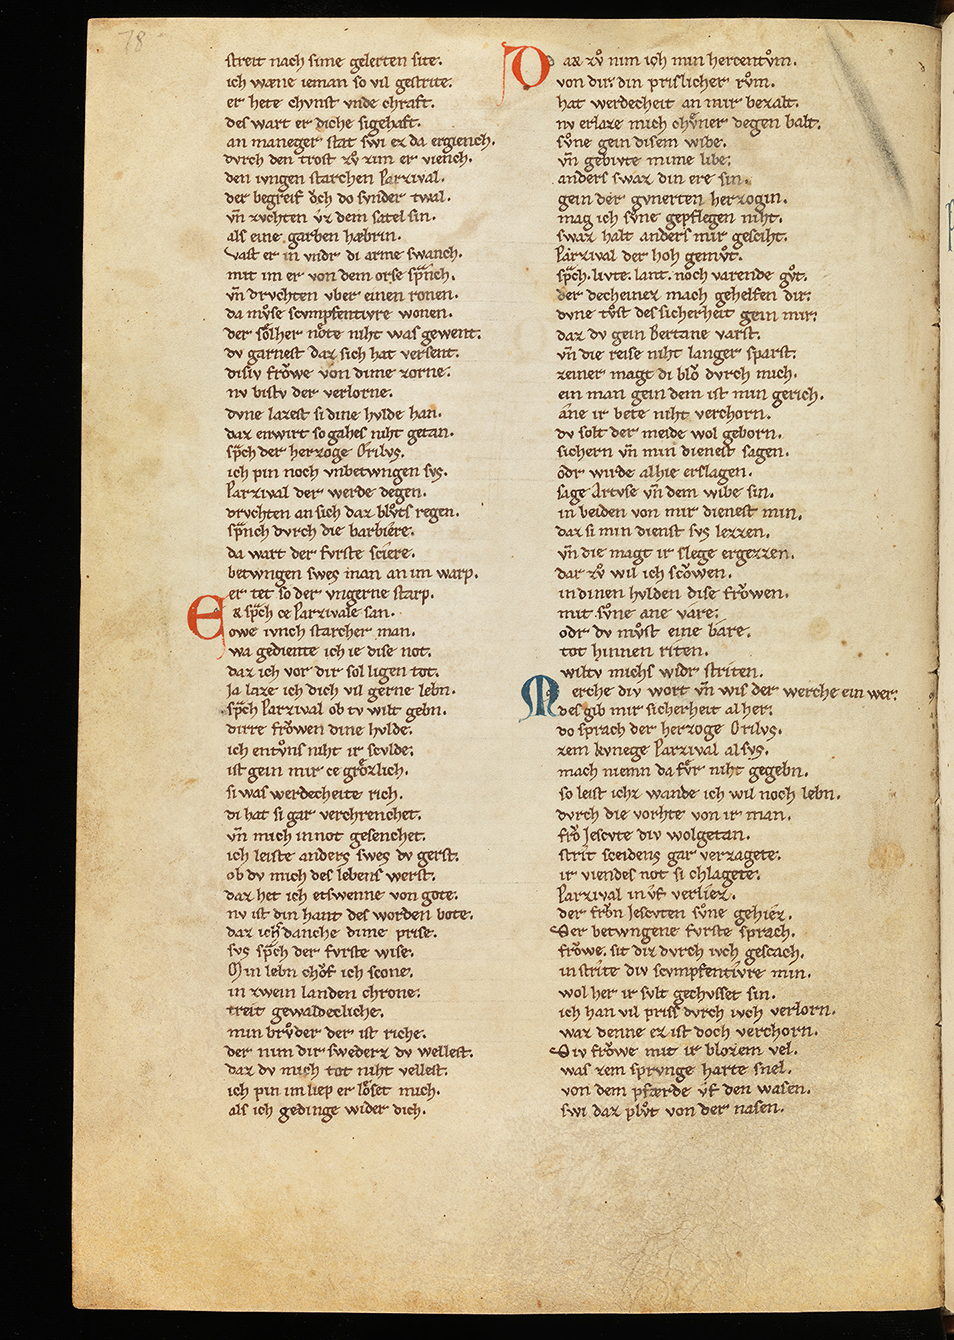 78
streit nach sime gelerten site.
ich wæne ieman so vil gestrite.
er hete chvnst vnde chraft.
des wart er diche sigehaft.
an maneger stat swi ez da ergiench.
dvrch den trost zv̊ zim er viench.
den ivngen starchen Parzival.
der begreif ŏch do svnder twal.
vn̄ zvchten v̂z dem satel sin.
als eine garben hæbrin.
vast er in vndr di arme swanch.
mit im er von dem orse sp̄nch.
vn̄ drvchten vber einen ronen.
da mv̊se scvmpfentivre wonen.
der sŏlher nŏte niht was gewent.
dv garnest daz sich hat versent.
disiv frŏwe von dime zorne.
nv bistv der verlorne.
dvne lazest si dine hvlde han.
daz enwirt so gahes niht getan.
sp̄ch der herzoge Orilvs.
ich pin noch vnbetwngen svs.
Parzival der werde degen.
drvchten an sich daz blv̊ts regen.
sp̄nch dvrch die barbiére.
da wart der fvrste sciere.
betwngen swes man an im warp.
er tet so der vngerne starp.
Ez sp̄ch ce Parzivale san.
owe ivnch starcher man.
wa gediente ich ie dise not.
daz ich vor dir sol ligen tot.
Ja laze ich dich vil gerne lebn.
sp̄ch Parzival ob tv wilt gebn.
dirre frŏwen dine hvlde.
ich entv̊ns niht ir scvlde.
ist gein mir ce grŏzlich.
si was werdecheite rich.
di hat si gar verchrenchet.
vn̄ mich in not gesenchet.
ich leiste anders swes dv gerst.
ob dv mich des lebens werst.
daz het ich etswenne von gote.
nv ist din hant des worden bote.
daz ichs danche dime prise.
svs sp̄ch der fvrste wise.
Min lebn chŏf ich scone.
in zwein landen chrone.
treit gewaldecliche.
min brv̊der der ist riche.
der nim dir swederz dv wellest.
daz dv mich tot niht vellest.
ich pin im liep er lŏset mich.
als ich gedinge wider dich.
Dar zv̊ nim ich min hercentv̊m.
von dir. din prislicher rv̊m.
hat werdecheit an mir bezalt.
nv erlaze mich chv̊ner degen balt.
sv̊ne gein disem wibe.
vn̄ gebivte mime libe.
anders swaz din ere sin.
gein der gvnerten herzogin.
mag ich sv̊ne gepflegen niht.
swaz halt anders mir gesciht.
Parzival der hoh gemv̊t.
sp̄ch. livte. lant. noch varende gv̊t.
der decheinez mach gehelfen dir.
dvne tv̊st des sicherheit gein mir.
daz dv gein Bertane varst.
vn̄ die reise niht langer sparst.
zeiner magt di blŏ dvrch mich.
ein man gein dem ist min gerich.
âne ir bete niht verchorn.
dv solt der meide wol geborn.
sichern vn̄ min dienest sagen.
odr wirde al hie erslagen.
sage Artvse vn̄ dem wibe sin.
in beiden von mir dienest min.
daz si min dienst svs lezzen.
vn̄ die magt ir slege ergezzen.
dar zv̊ wil ich scŏwen.
in dinen hvlden dise frŏwen.
mit sv̊ne ane vâre.
odr dv mv̊st eine bâre.
tot hinnen riten.
wiltv michs widr striten.
Merche div wort vn̄ wis der werche ein wer.
des gib mir sicherheit al her.
do sprach der herzoge Orilvs.
zem kvnege Parzival alsvs.
mach niemn da fv̊r niht gegebn.
so leist ichz wande ich wil noch lebn.
dvrch die vorhte von ir man.
frŏ Jescvte div wolgetan.
strit sceidens gar verzagete.
ir viendes not si chlagete.
Parzival in v̂f verliez.
der frŏn Jescvten sv̊ne gehiez.
Der betwngene fvrste sprach.
frŏwe. sit diz dvrch ivch gescach.
in strite div scvmpfentivre min.
wol her ir svlt gechvsset sin.
ich han vil priss dvrch ivch verlorn.
waz denne ez ist doch verchorn.
Div frŏwe mit ir blozem vel.
was zem sprvnge harte snel.
von dem pfærde v̂f den wasen.
swi daz plv̊t von der nasen.